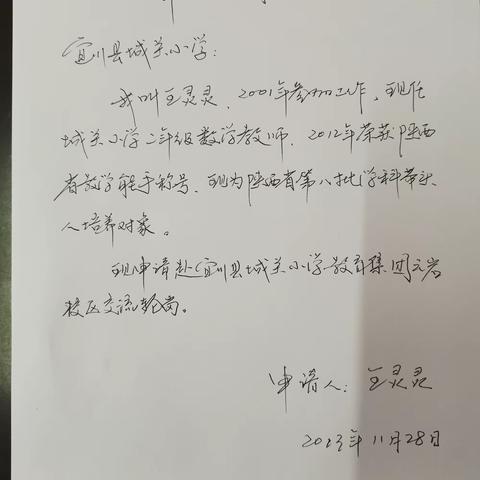 宜川县城关小学:
我叫王灵灵，2001年参加工作，现任
城关小学二年级数学教师，2012年荣获陕西
省教学能手称号，现为陕西省第八批学科带头
人培养对象。
现申请赴宜川县城关小学教育集团云岩
校区交流轮岗。
申请人：王灵灵
2023年11月28日